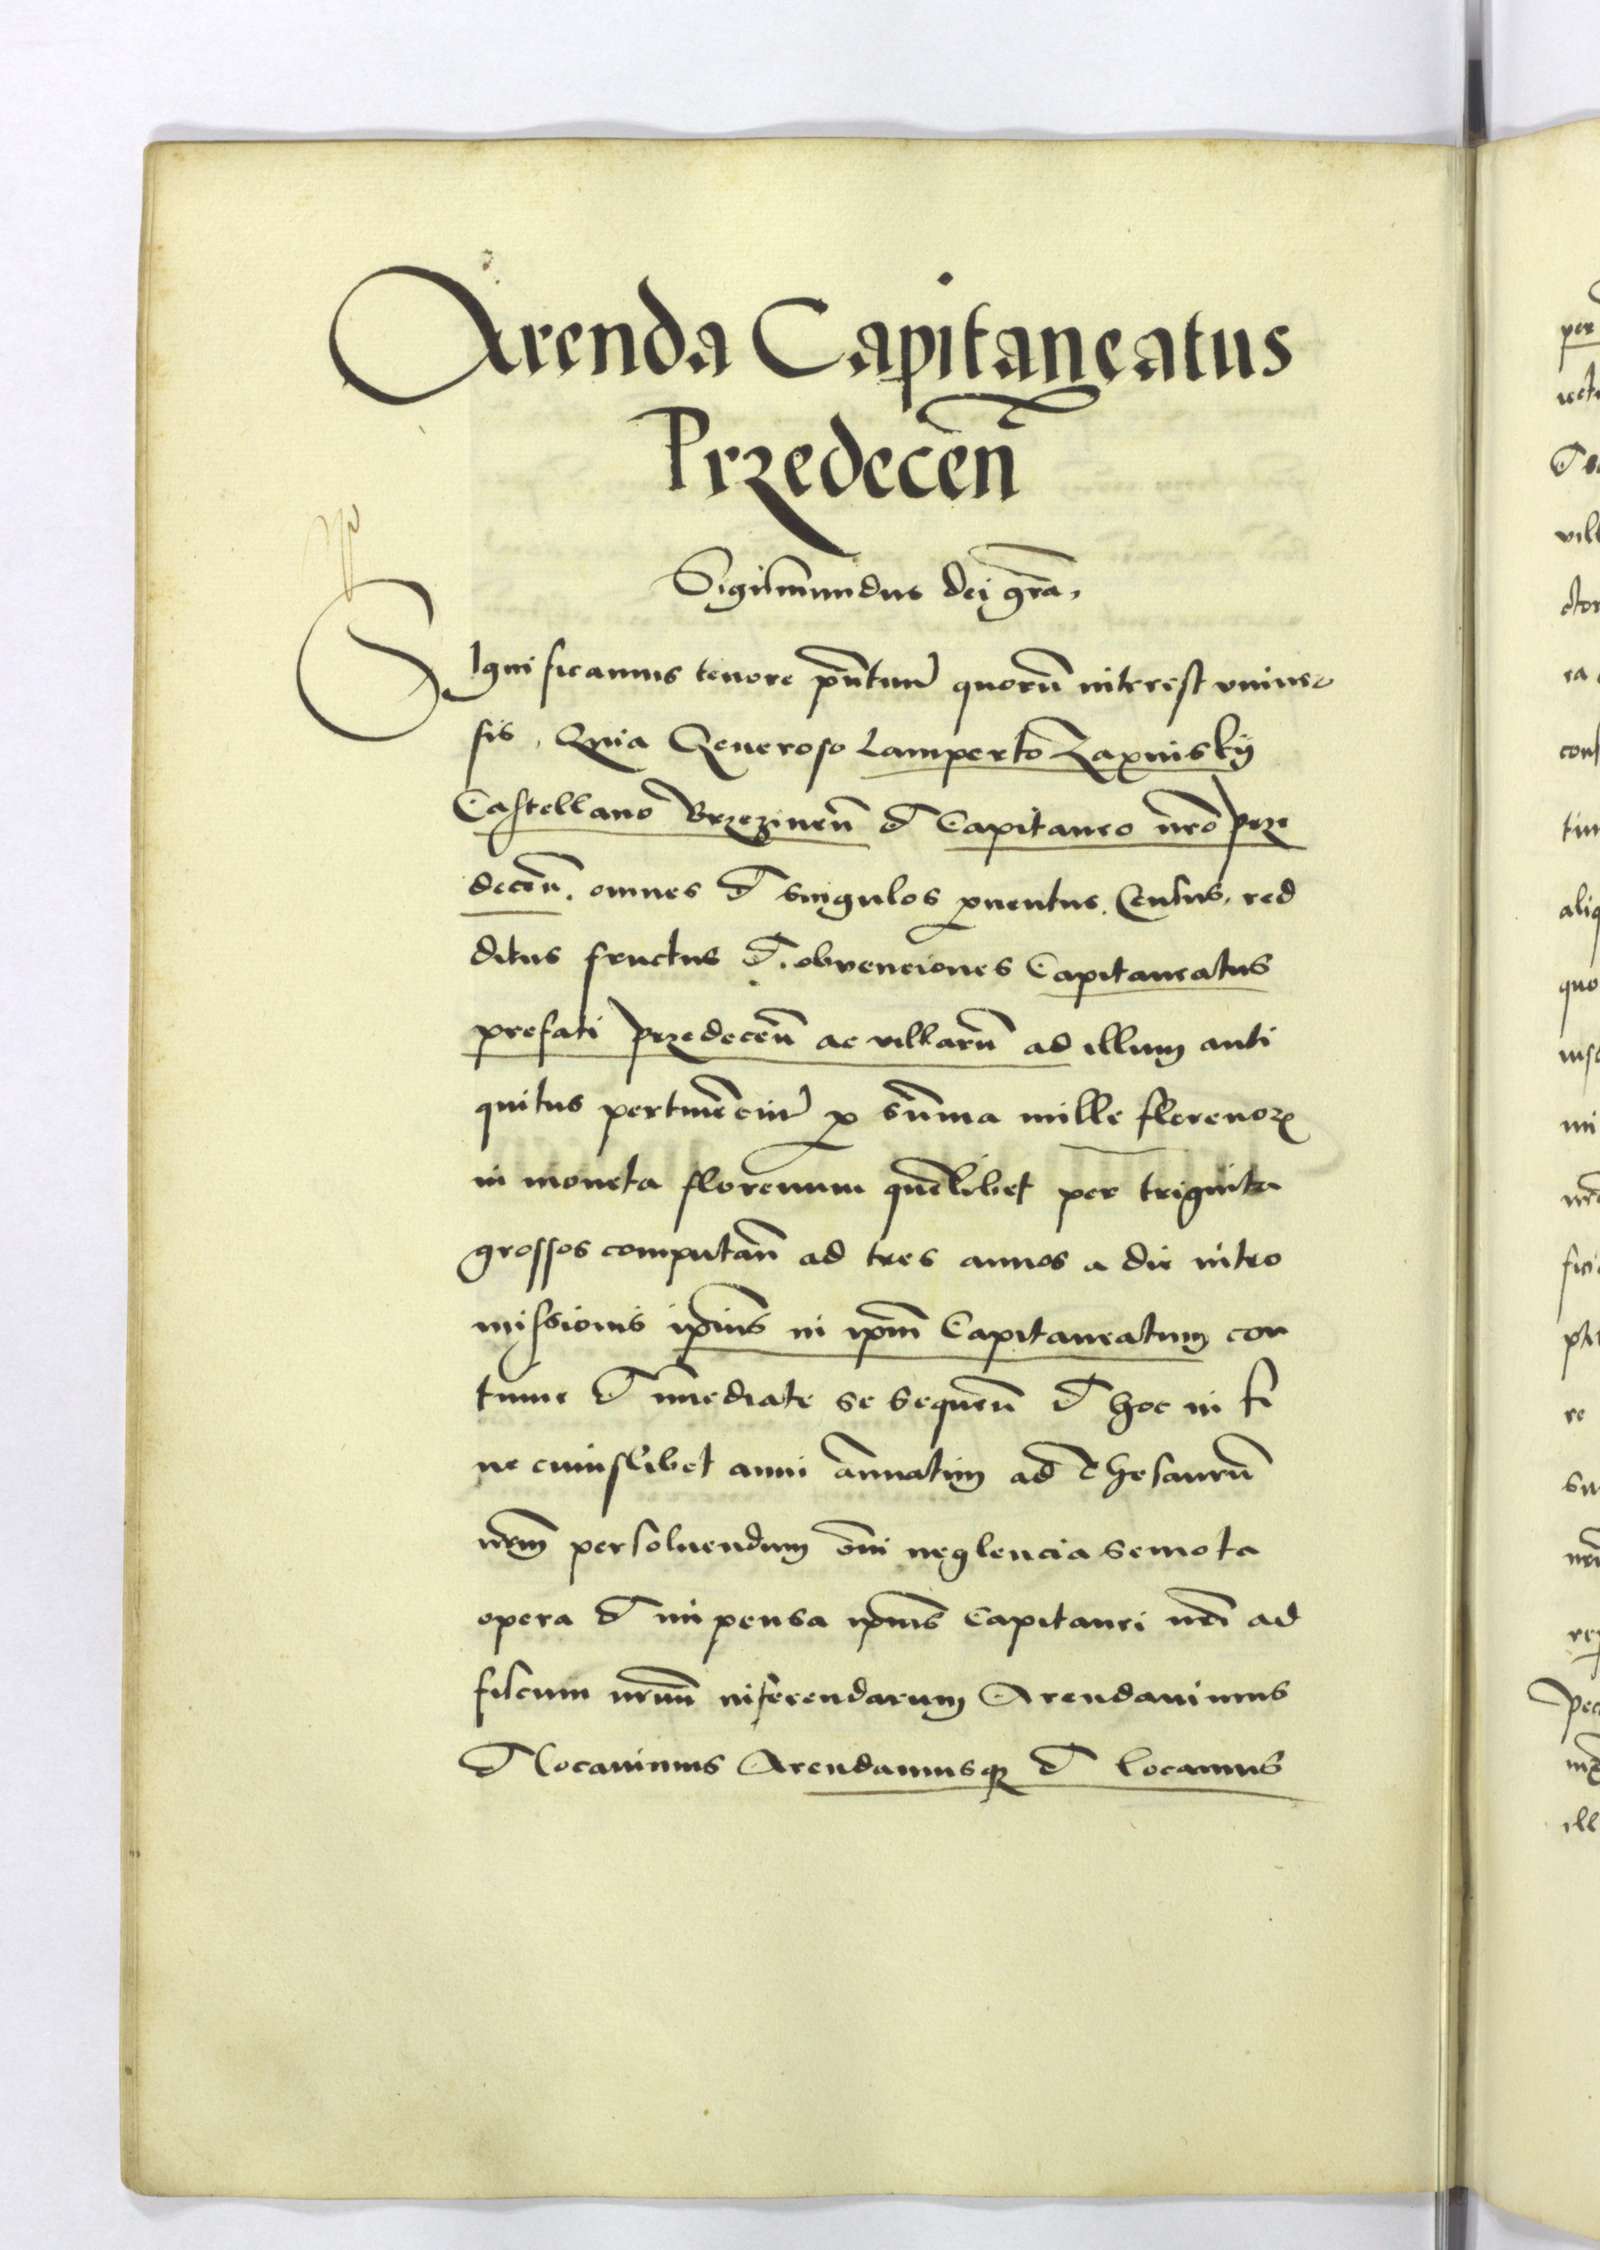 Arenda Capitaneatus
Przedecen̄
Sigismundus dei gr̄a,
Significamus tenore pn̄tium quorū interest vniuer
sis, Quia Generoso Lamperto Zaxinskÿ
Castellano Brzezinen̄ et Capitaneo nr̄o Prze
decen̄. omnes et singulos ꝓuentus, Census, red
ditus fructus et obvenciones Capitaneatus
prefati Przedecen̄ ac villarū ad illum anti
quitus pertinēciu ꝓ sūma mille florenoꝝ
in moneta florenum quēlibet per triginta
grossos computan̄ ad tres annos a die intro
missionis ip̄ius in ip̄m Capitaneatum con
tinue et īmediate se sequen̄ et hoc in fi
ne cuiuslibet anni ānuatim ad Thesaurū
nr̄m persoluendum om̄i neglencia semota
opera et inpensa ip̄ius Capitanei nr̄i ad
fiscum nrūm inferendarum Arendauimus
et locauimus Arendamusqꝫ et locamus
per